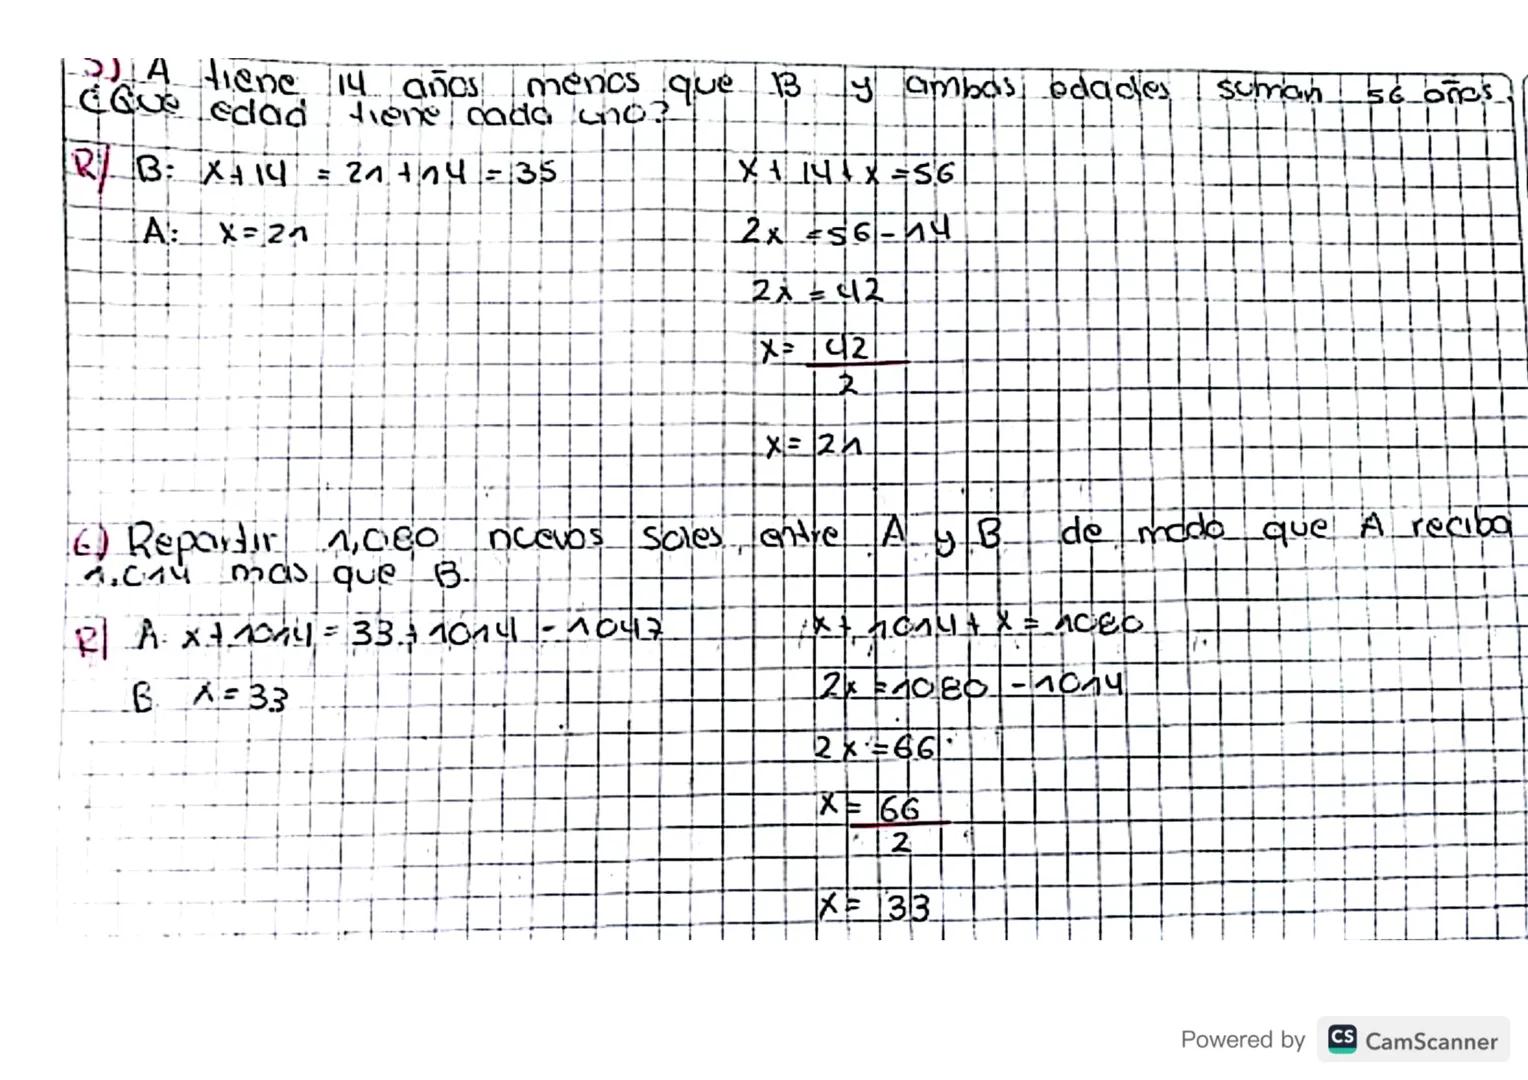 5) A tiene 14 años menos que B y ambas edades suman 56 años.
¿Que edad tiene cada uno?
R/ B: x+14 = 21+14 = 35
x+14+x=56
A: x=21
2x=56-14
2x=42
x=42
2
x=21
6) Repartir 1,080 nuevos soles, entre A y B de modo que A reciba
1.014 mas que B.
R/ A: x+1014=33+1014=1047
x+1014+x=1080
B x=33
2x=1080-1014
2x=66
x=66
2
x=33
Powered by CS CamScanner